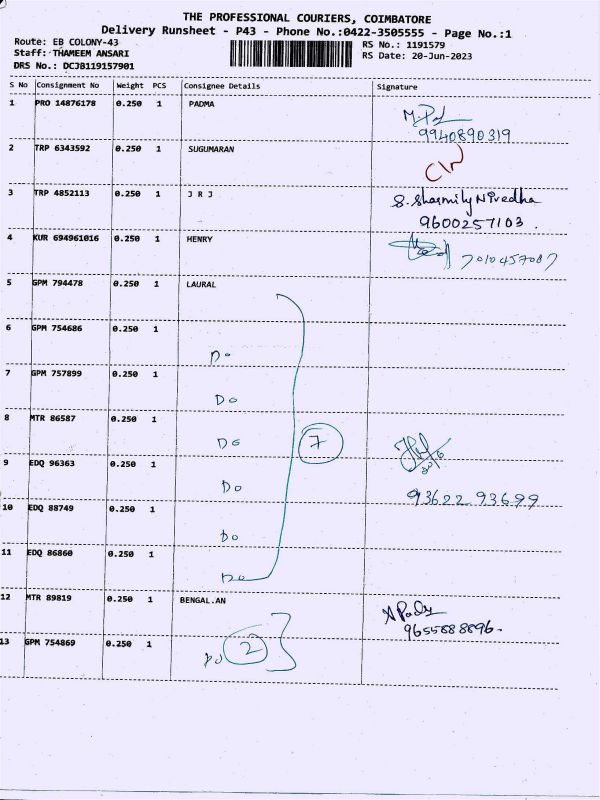 THE PROFESSIONAL COURIERS, COIMBATORE
Delivery Runsheet - P43 - Phone No.:0422-3505555 - Page No.:1
Route: EB COLONY-43
RS No.: 1191579
Staff: THAMEEM ANSARI
RS Date: 20-Jun-2023
DRS No.: DCJB119157901
S No Consignment No Weight PCS Consignee Details Signature
1 PRO 14876178 0.250 1 PADMA
9940890319
2 TRP 6343592 0.250 1 SUGUMARAN
3 TRP 4852113 0.250 1 J R J S. Sharmily Nivedha
9600257103.
4 KUR 694961016 0.250 1 HENRY 7010457087
5 GPM 794478 0.250 1 LAURAL
6 GPM 754686 0.250 1
Do
7 GPM 757899 0.250 1
Do
8 MTR 86587 0.250 1
Do 7
9 EDQ 96363 0.250 1
Do
93622 93699
10 EDQ 88749 0.250 1
Do
11 EDQ 86860 0.250 1
Do
12 MTR 89819 0.250 1 BENGAL.AN
9655888896.
13 GPM 754869 0.250 1
Do 2